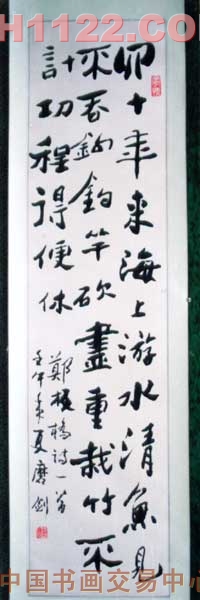 H1122.COM
四十年来海上游水清魚見
不吞鈎釣竿砍盡重栽竹不
計功程得便休
鄭板橋詩一首
壬午年夏磨剑
中国书画交易中心